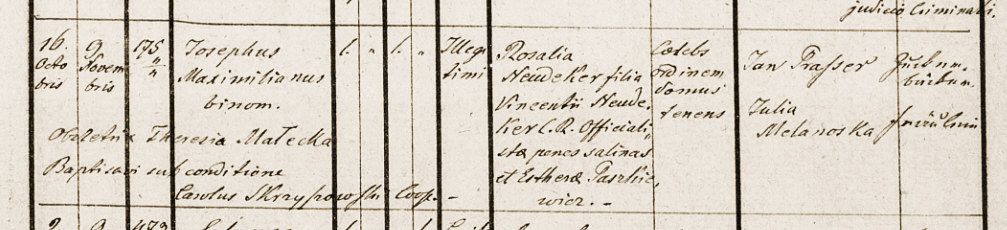 judicii Criminali.
16. Octobris
9 Novembris
175
Josephus
Maximilianus
binom.
1. " 1. "
Illegitimi
Rosalia
Neudeker filia
Vincentii Neude-
ker C. R. Officiali-
stæ penes salinas
et Estheræ Paszkie-
wicz. -
Cœlebs
ordinem
domus
tenens
Jan Prasser
Julia
Melanoska
Obstetrix Theresia Małecka
Baptisavi sub conditione
Carolus Skrzypowski Coop. -